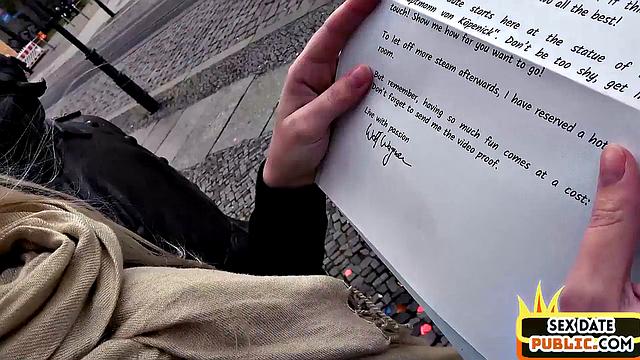 if th
all the best!
starts here at the statue of
uptmann von Köpenick". Don't be too shy, get
touch! Show me how far you want to go!
To let off more steam afterwards, I have reserved a hot
room.
But remember, having so much fun comes at a cost:
Don't forget to send me the video proof.
Live with passion
Wolf Wagner
SEX DATE
PUBLIC.COM